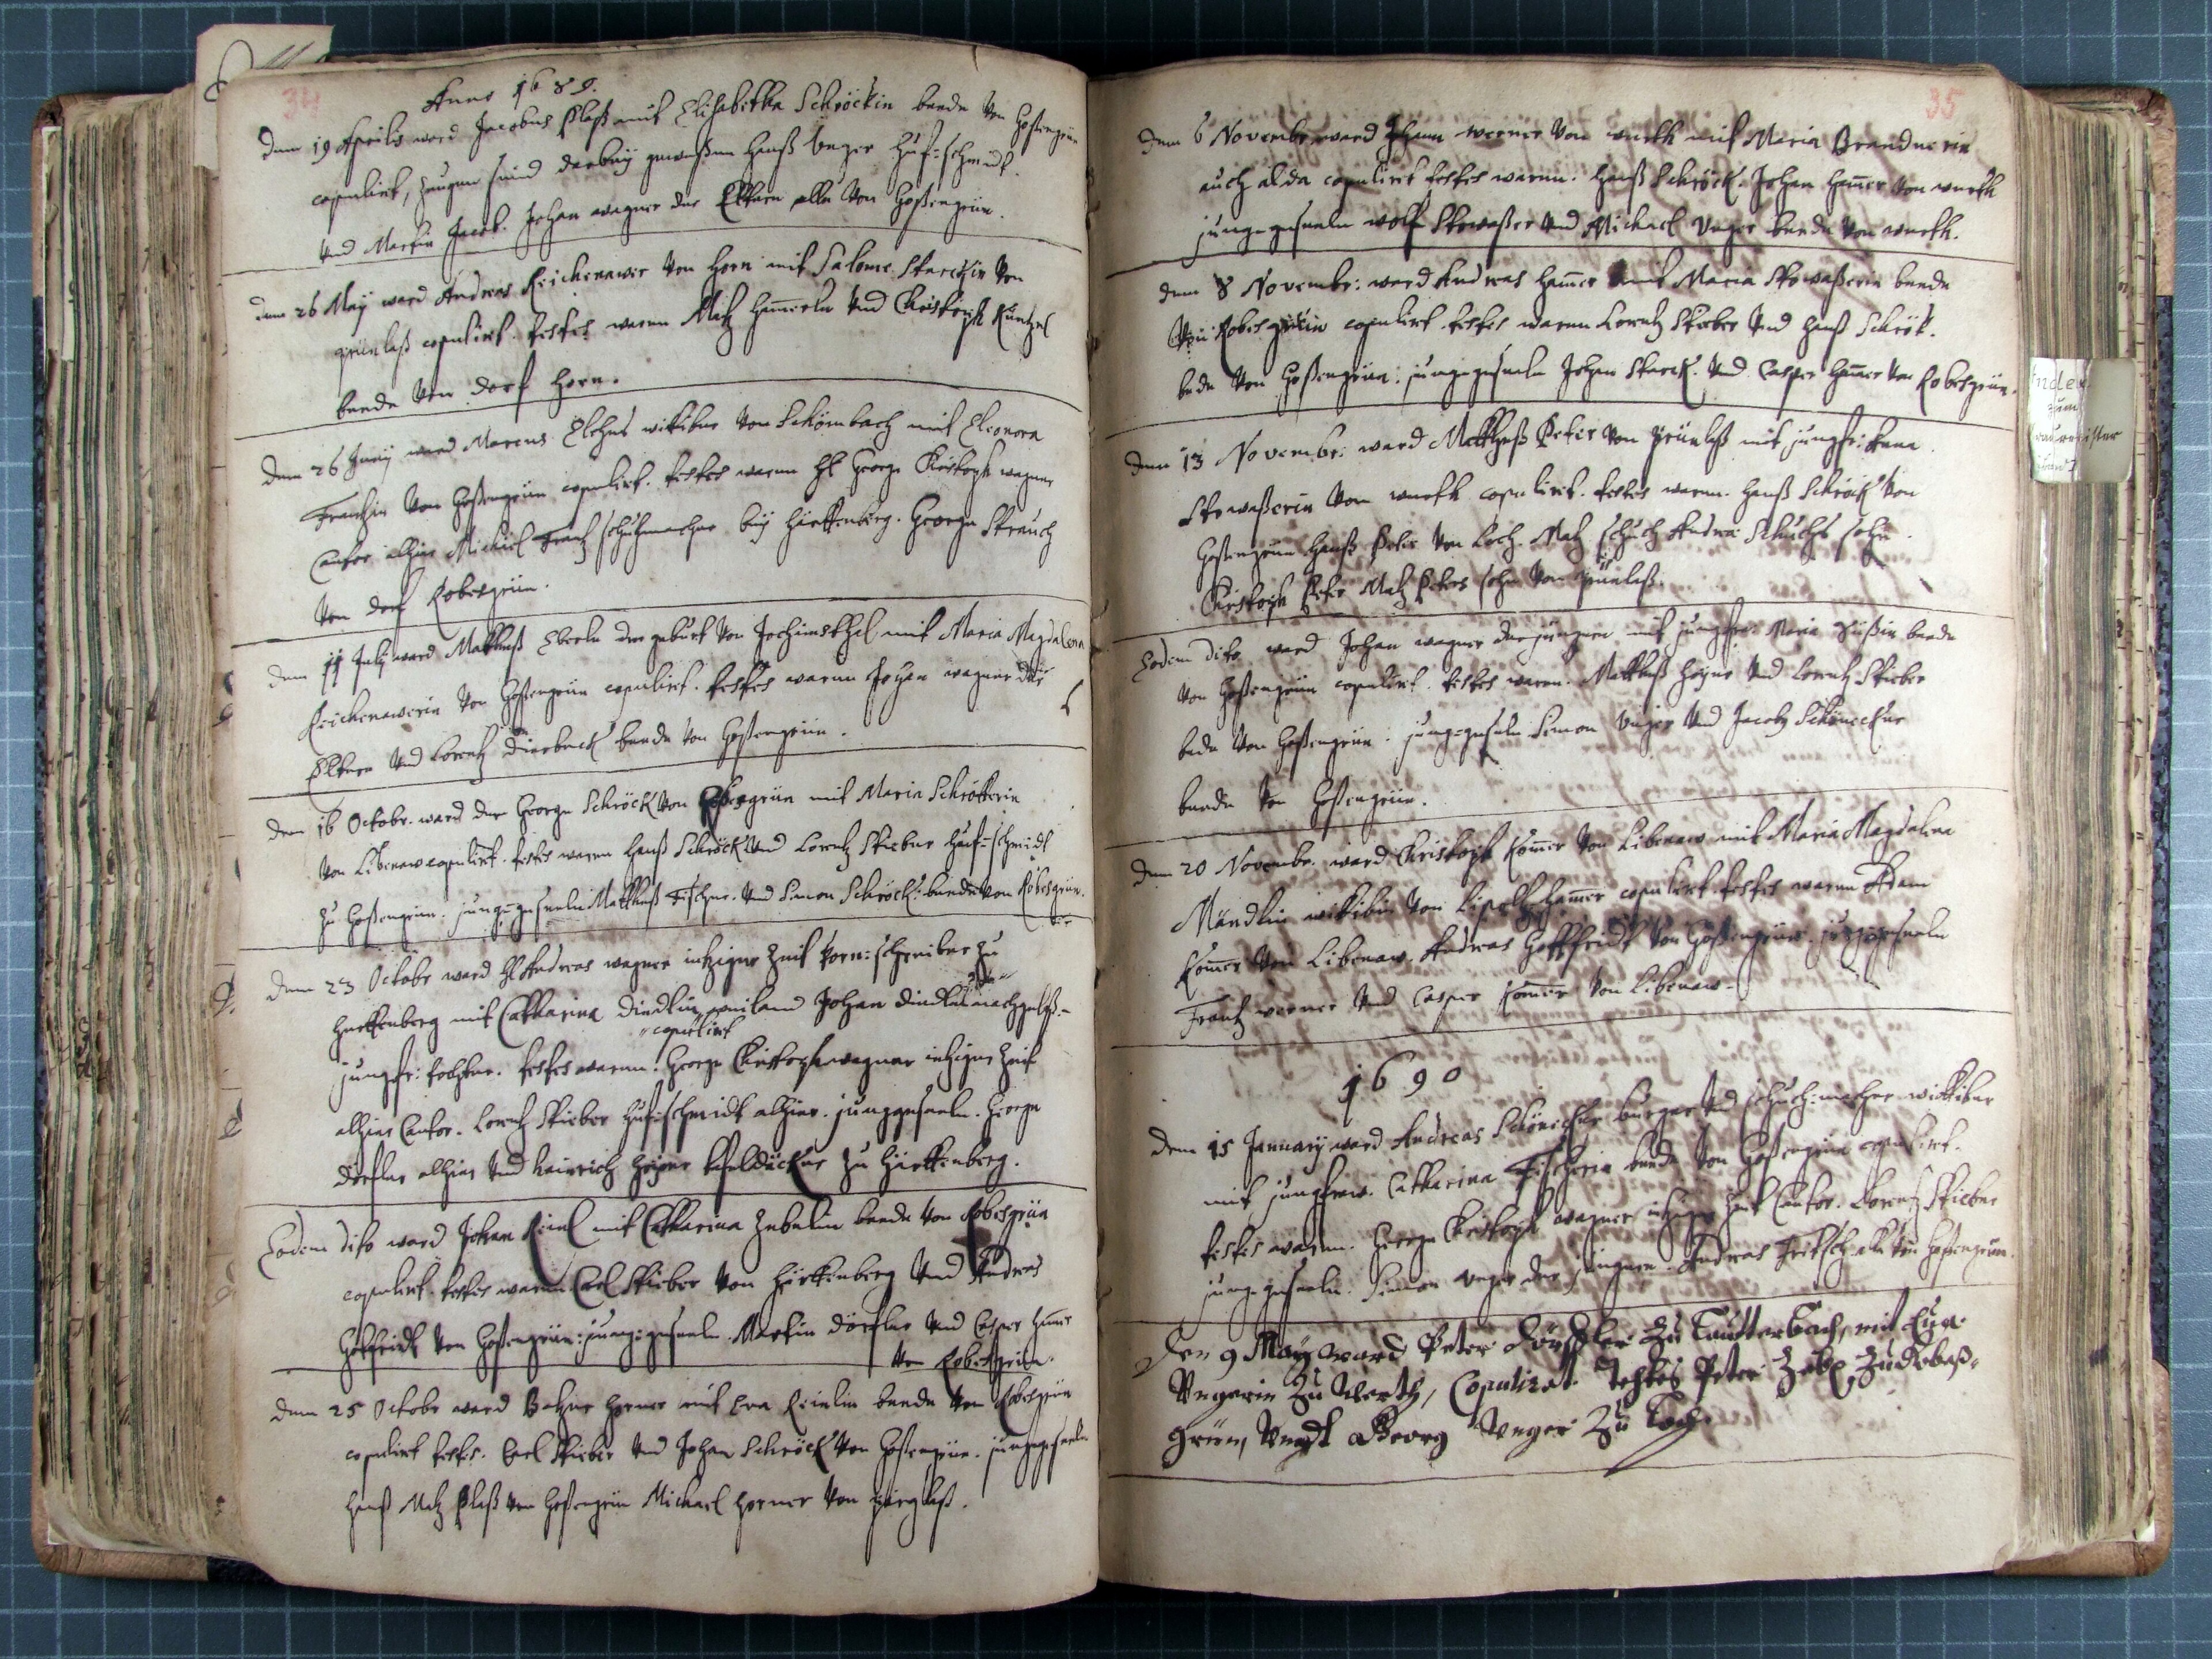 34
Anno 1689.
Dem 19 Aprilis ward Jacobus Plaß mit Elisabetha Schröckin beede von Goßengrün
copulirt, zeugen seind darbey geweßen Hanß Unger Huf=schmidt.
und Martin Jacob. Johan wagner der Eltere alle von Goßengrün.
dem 26 May ward Andreas Reichenawer von Horn mit Salome Starckin von
grünlaß copulirt. testes waren Matz Ham̃erla und Christoph Küntzel
beede von dorf Horn.
Dem 26 Juny ward Marcus wittiber von Schömbach mit Eleonora
Frantzin von Goßengrün copulirt. testes waren Hl George Christoph wagner
Cantor alhier Michael Frantz schuhmacher bey Hartenberg. George Strauch
von dorf Robesgrün.
dem 11 July ward Matthuß Eberle der geburt von Jochimsthal mit Maria Magdalena
Reichenawerin von Goßengrün copulirt. testes waren Johan wagner der
Eltere und Lorentz beede von Goßengrün.
dem 16 Octobr. ward der George Schröck von mit Maria Schrötterin
von Libenaw copulirt. testes waren Hanß Schröck und Lorentz Stieber Huf=schmidt
zu Goßengrün. junge=geseeln Matthuß Fischer. und Simon Schröck: beede von Robesgrün.
dem 23 Octobr ward Hl Andreas wagner itziger Zeit korn=schreiber zu
Hartenberg mit Catharina weiland Johan nachgelaß.
copulirt
jungfr: tochter. testes waren. George Christoph wagner itziger Zeit
alhier Cantor. Lorentz Stieber Huf=schmidt alhier. junggeseeln. George
dörfler alhier und Hainrich zu Hartenberg.
Eodem dito ward Johan Reinl mit Catharina Zebelin beede von Robesgrün
copulirt. testes waren Carl Stieber von Hartenberg und Andreas
Gottfridt von Goßengrün: jung=geseeln. Martin dörfler und Casper Ham̃er
von Robesgrün.
dem 25 Octobr ward Horner mit Eva Reinlin beede von Robesgrün
copulirt testes. Carl Stieber und Johan Schröck von Goßengrün. junggeseeln
Hanß Matz Plaß von Goßengrün Michael Horner von
35
Dem 6 Novembr ward Johann werner von werth mit Maria Brandnerin
auch alda copulirt testes waren. Hanß Schröck. Johan Ham̃er von werth
junge geseeln wolf Stowaßer und Michael Unger beede von werth.
dem 8 Novembr: ward Andreas Ham̃er mit Maria Stowaßerin beede
von Robesgrün copulirt. testes waren Lorentz Stieber und Hanß Schrök.
bede von Goßengrün: junge=geseeln Johan Starck. und Casper Ham̃er von Robesgrün.
Dem 13 Novembr: ward Matthuß Peter von Grünlaß mit jungfr: Anna
Stowaßerin von werth copulirt. testes waren. Hanß Schröck von
Goßengrün Hanß Peter von Loch. Matz schuch Andrea Schuchs sohn.
Christoph Peter Matz Peters sohn von Grünlaß.
Eodem dito ward Johan wagner der jüngere mit jungfr: Maria Süßin beede
von Goßengrün copulirt. testes waren. Matthuß und Lorentz Stieber
bede von Goßengrün. jung=geseeln Simon Unger und Jacob Schönecker
beede von Goßengrün.
Dem 20 Novembr. ward Christoph Kom̃er von Libenaw mit Maria Magdalena
Mändlin wittibin von copulirt. testes waren Adam
Kom̃er von Libenaw. Andreas Gottfridt von Goßengrün. junggeseeln
Frantz werner und Casper Kom̃er von Libenaw.
1690
Dem 15 January ward Andreas Schönecker burger und schuch=macher wittiber
mit jungfraw. Catharina Fischerin beede von Goßengrün copulirt.
testes waren. George Christoph wagner itziger Zeit Cantor. Lorentz Stieber
junge geseeln. Simon Unger der jüngere. Andreas Fritsch alle von Goßengrün.
Den 9 May ward Peter Dörffler zu Lautterbach, mit Eva
Ungerin zu Werth, Copulirt. Testes Peter Zebl, zu Robaß-
grün, Undt Georg Unger zu Loch.
Index
zum